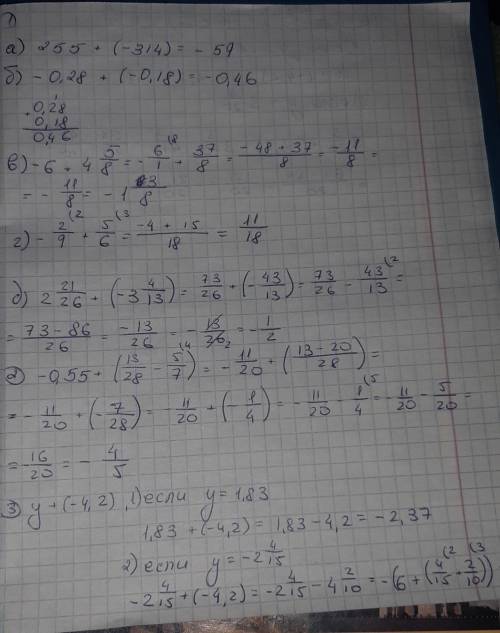 1)
а) 255 + (-314) = - 59
б) - 0,28 + (-0,18) = -0,46
+ 0,28
0,18
0,46
в) -6 + 4 5/8 = - 6/1 (8 + 37/8 = -48 + 37/8 = -11/8 =
= - 11/8 = - 1 3/8
г) - 2/9 (2 + 5/6 (3 = -4 + 15/18 = 11/18
д) 2 21/26 + (-3 4/13) = 73/26 + (- 43/13) = 73/26 - 43/13 (2 =
= 73 - 86/26 = -13/26 = - 13/26 2 = - 1/2
2) -0,55 + (13/28 - 5/7 (4) = - 11/20 + (13 - 20/28) =
= - 11/20 + (- 7/28) = - 11/20 + (- 1/4) = - 11/20 - 1/4 (5 = - 11/20 - 5/20 =
= - 16/20 = - 4/5
3) y + (-4,2), 1) если y = 1,83
1,83 + (-4,2) = 1,83 - 4,2 = - 2,37
2) если y = -2 4/15
-2 4/15 + (-4,2) = -2 4/15 - 4 2/10 = - (6 + (4/15 (2 + 2/10 (3))